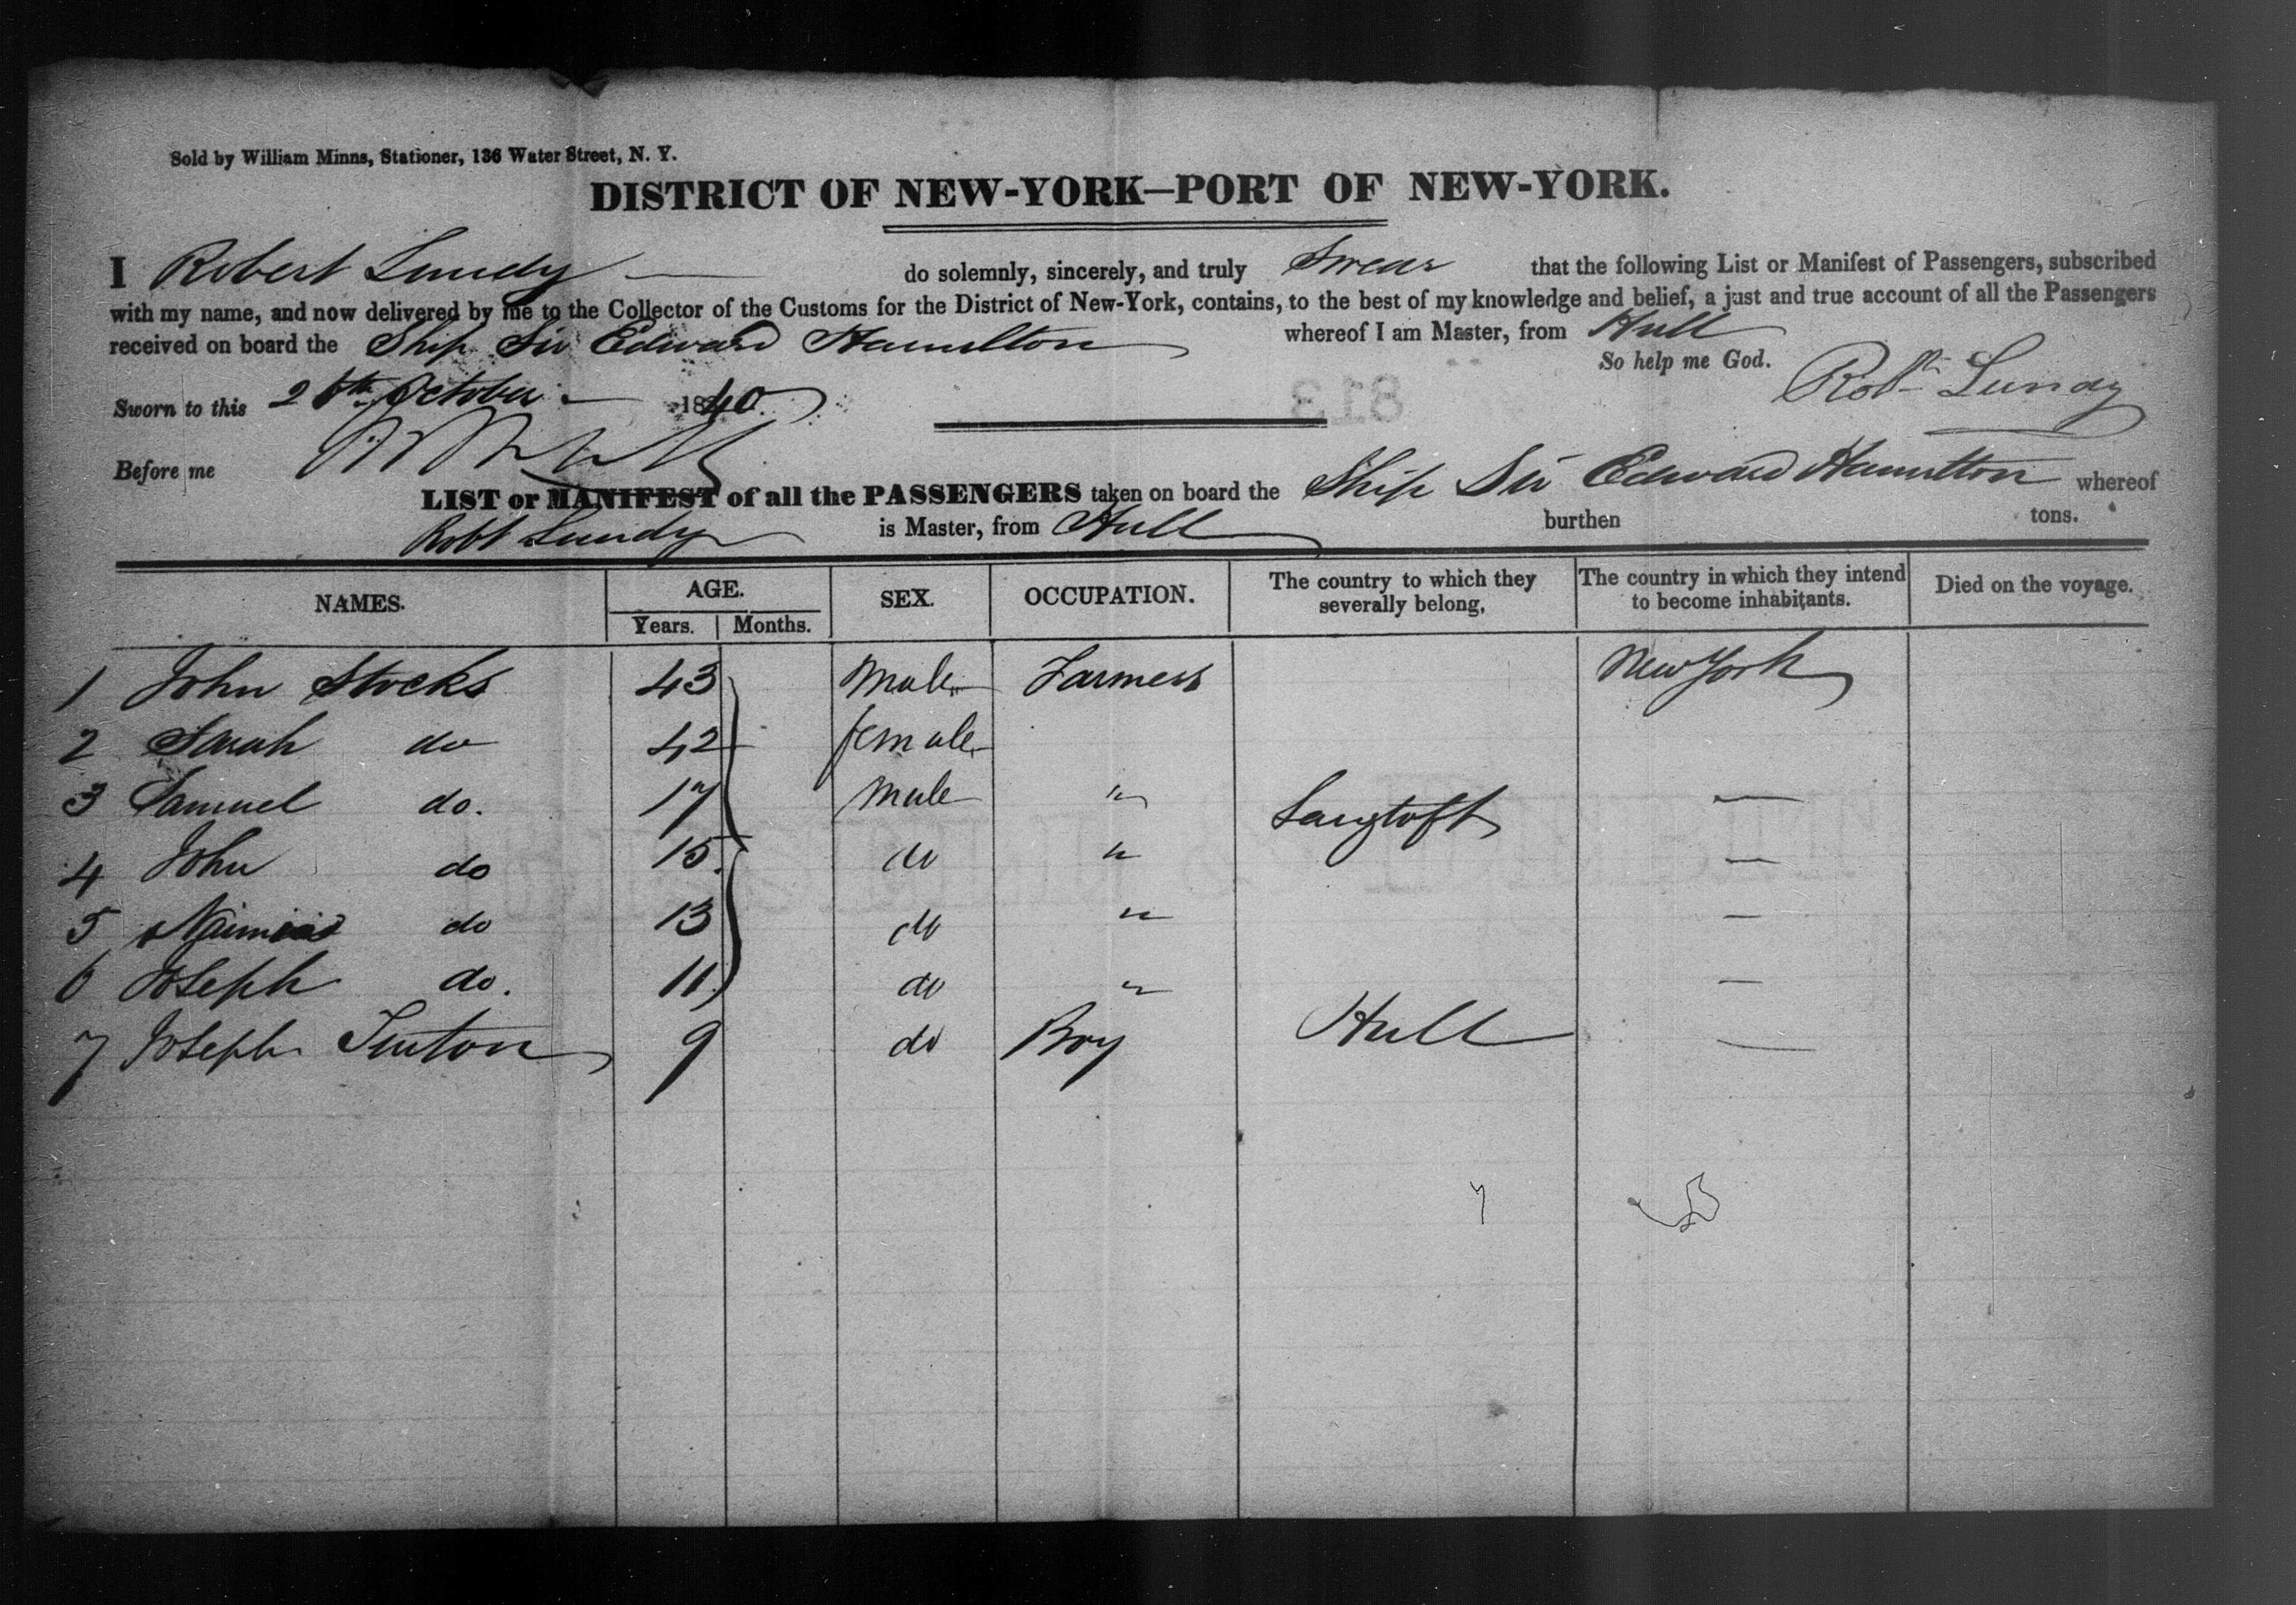 Sold by William Minns, Stationer, 136 Water Street, N. Y.
DISTRICT OF NEW-YORK—PORT OF NEW-YORK.
I Robert Lundy do solemnly, sincerely, and truly Swear that the following List or Manifest of Passengers, subscribed
with my name, and now delivered by me to the Collector of the Customs for the District of New-York, contains, to the best of my knowledge and belief, a just and true account of all the Passengers
received on board the Ship Sir Edward Hamilton whereof I am Master, from Hull
So help me God.
Robt Lundy
Sworn to this October 1840
813
Before me
LIST or MANIFEST of all the PASSENGERS taken on board the Ship Sir Edward Hamilton whereof
Robt Lundy is Master, from Hull burthen tons.
NAMES. AGE. SEX. OCCUPATION. The country to which they severally belong, The country in which they intend to become inhabitants. Died on the voyage.
Years. Months.
1 John Stocks 43 Male Farmers New York
2 Sarah do 42 female
3 Samuel do. 17 Male " Langtoft —
4 John do 15 do " —
5 do 13 do " —
6 Joseph do. 11 do " —
7 Joseph 9 do Boy Hull —
7